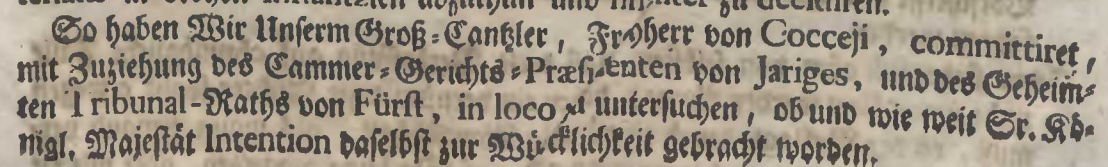 So haben Wir Unserm Groß-Cantzler, Freyherr von Cocceji, committiret,
mit Zuziehung des Cammer-Gerichts-Præsidenten von Jariges, und des Geheim-
ten Tribunal-Raths von Fürst, in loco zu untersuchen, ob und wie weit Sr. Kö-
nigl. Majestät Intention daselbst zur Würcklichkeit gebracht worden.